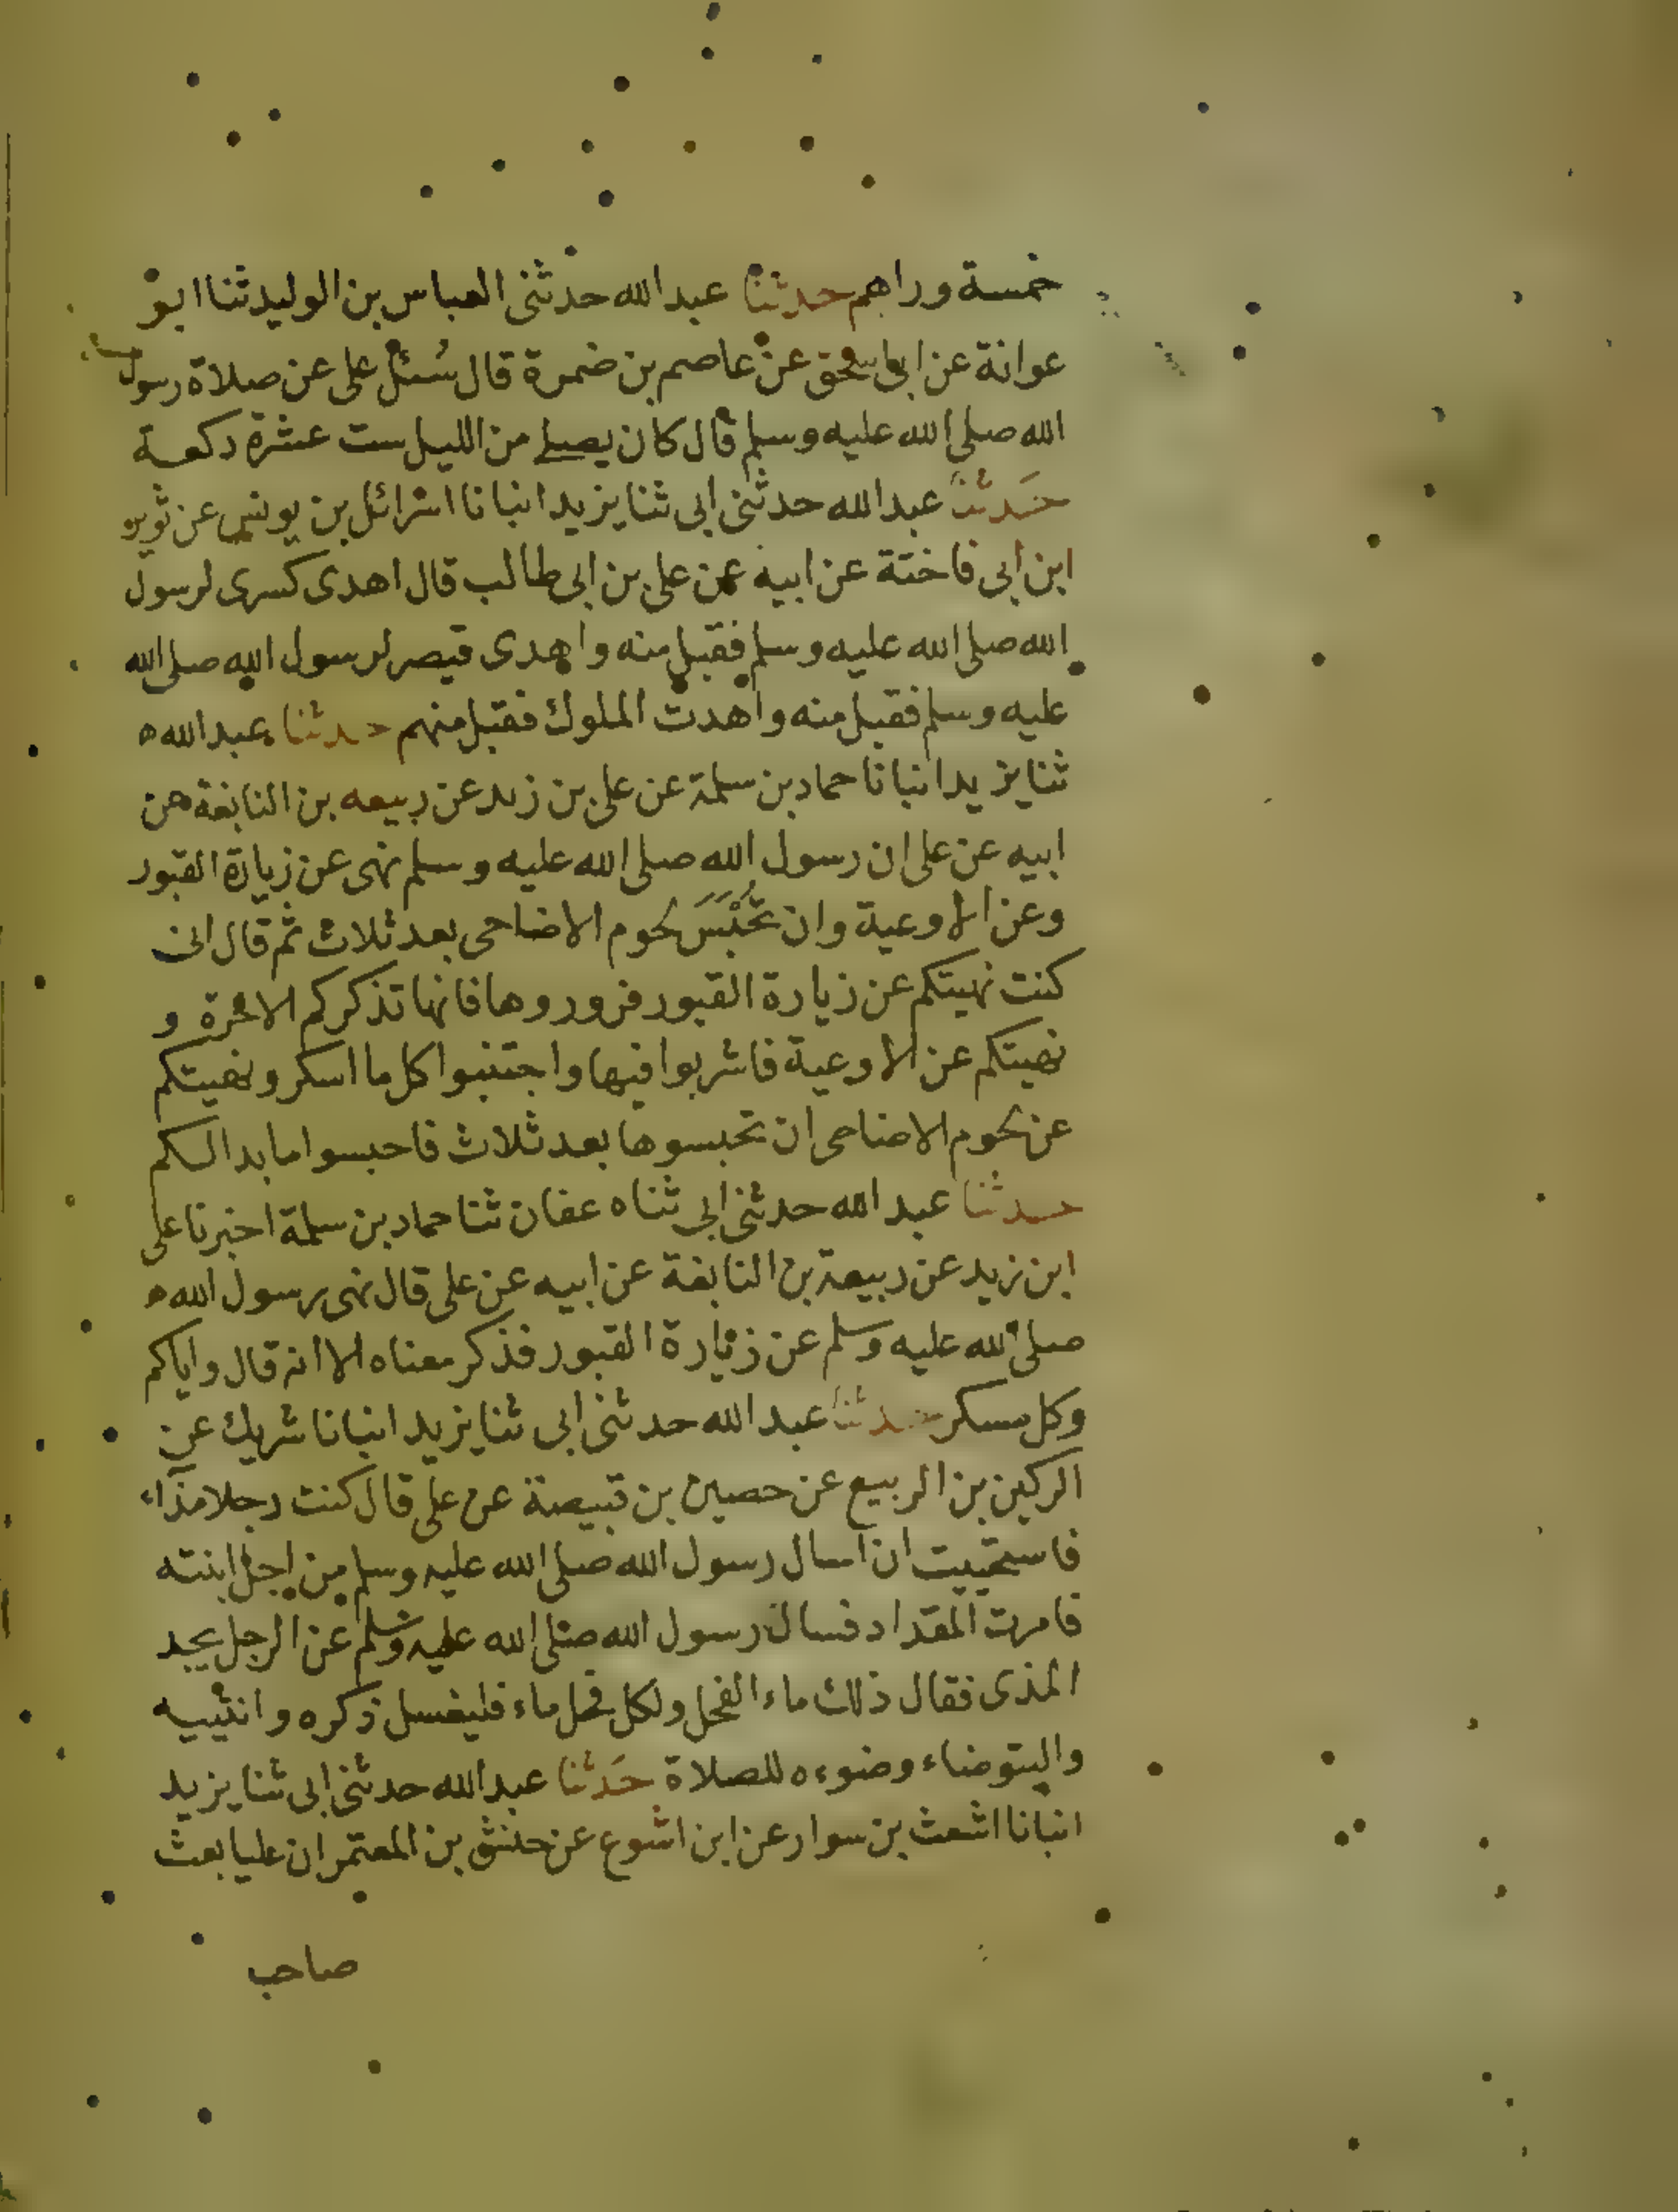 خمسة دراهم حدثنا عبد الله حدثنى العباس بن الوليد ثنا ابو
عوانة عن ابى اسحق عن عاصم بن ضمرة قال سُئل على عن صلاة رسول
الله صلى الله عليه وسلم قال كان يصلى من الليل ست عشرة ركعة
حَدثنا عبد الله حدثنى ابى ثنا يزيد انبانا اسرائل بن يونس عن ثوير
ابن ابى فاختة عن ابيه عن على بن ابى طالب قال اهدى كسرى لرسول
الله صلى الله عليه وسلم فقبل منه واهدى قيصر لرسول الله صلى الله
عليه وسلم فقبل منه واهدت الملوك فقبل منهم حدثنا عبد الله ه
ثنا يزيد انبانا حماد بن سلمة عن على بن زيد عن ربيعه بن النابغة عن
ابيه عن على ان رسول الله صلى الله عليه وسلم نهى عن زيارة القبور
وعن الاوعية وان تُحْبَسَ لحوم الاضاحى بعد ثلاث ثم قال انى
كنت نهيتكم عن زيارة القبور فزوروها فانها تذكركم الاخرة و
نهيتكم عن الاوعية فاشربوا فيها واجتنبوا كل ما اسكر ونهيتكم
عن لحوم الاضاحى ان تحبسوها بعد ثلاث فاحبسوا ما بدا لكم
حدثنا عبد الله حدثنى ابى ثناه عفان ثنا حماد بن سلمة اخبرنا على
ابن زيد عن ربيعة بن النابغة عن ابيه عن على قال نهى رسول الله ه
صلى الله عليه وسلم عن زيارة القبور فذكر معناه الا انه قال واياكم
وكل مسكر حدثنا عبد الله حدثنى ابى ثنا يزيد انبانا شريك عن
الركين بن الربيع عن حصين بن قبيصة عن على قال كنت رجلا مذآء
فاستحييت ان اسال رسول الله صلى الله عليه وسلم من اجل ابنته
فامرت المقداد فسال رسول الله صلى الله عليه وسلم عن الرجل يجد
المذى فقال ذلك ماء الفحل ولكل فحل ماء فليغسل ذكره وانثييه
واليتوضاء وضوءه للصلاة حَدثنا عبد الله حدثنى ابى ثنا يزيد
انبانا اشعث بن سوار عن ابن اشوع عن حنش بن المعتمر ان عليا بعث
صاحب